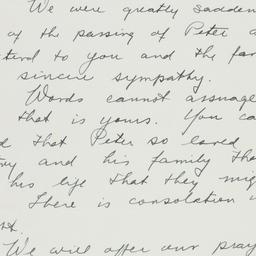 We were greatly sadden
of the passing of Peter a
tend to you and the fa
sincere sympathy.
Words cannot assuage
that is yours. You ca
d that Peter so loved
try and his family tha
his life that they mig
There is consolation
We will offer our pray